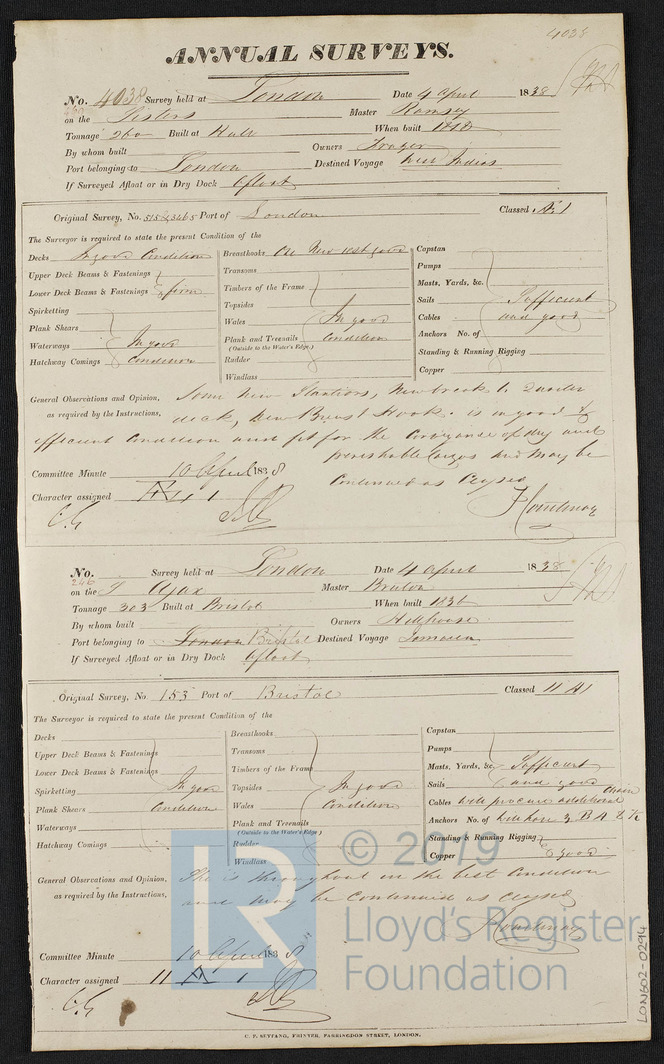 4038
ANNUAL SURVEYS.
No. 4038 Survey held at London Date 4 April 1838
on the Sisters Master Ramsey
Tonnage 260 Built at Hull When built 1818
By whom built Owners
Port belonging to London Destined Voyage West Indies
If Surveyed Afloat or in Dry Dock Afloat
Original Survey, No. 515 & 3465 Port of London Classed Æ 1
The Surveyor is required to state the present Condition of the
Decks In good Condition
Upper Deck Beams & Fastenings
Lower Deck Beams & Fastenings firm
Spirketting
Plank Shears
Waterways In good
Hatchway Comings Condition
Breasthooks One New rest good
Transoms
Timbers of the Frame
Topsides
Wales In good
Plank and Treenails Condition
(Outside to the Water's Edge.)
Rudder
Windlass
Capstan
Pumps
Masts, Yards, &c.
Sails Sufficient
Cables and good
Anchors No. of
Standing & Running Rigging
Copper
General Observations and Opinion, Some New Stantions, New break to Quarter
as required by the Instructions, deck, New Breast Hook. is in good &
efficient Condition and fit for the Conveyance of dry and
perishable Cargos and may be
Continued as Classed
Committee Minute 10 April 1838
Character assigned Æ 1
No. Survey held at London Date 4 April 1838
246
on the Ajax Master
Tonnage 303 Built at Bristol When built 1836
By whom built Owners Hillhouse
Port belonging to London Bristol Destined Voyage Jamaica
If Surveyed Afloat or in Dry Dock Afloat
Original Survey, No 153 Port of Bristol Classed 11 A1
The Surveyor is required to state the present Condition of the
Decks
Upper Deck Beams & Fastenings
Lower Deck Beams & Fastenings
Spirketting In good
Plank Shears Condition
Waterways
Hatchway Comings
Breasthooks
Transoms
Timbers of the Frame
Topsides In good
Wales Condition
Plank and Treenails
(Outside to the Water's Edge)
Rudder
Windlass
Capstan
Pumps
Masts, Yards, &c Sufficient
Sails and good
Cables will procure additional Chain
Anchors No. of will have 3 B A &
Standing & Running Rigging
Copper good
General Observations and Opinion, She is throughout in the best Condition
as required by the Instructions, and may be Continued as Classed
Committee Minute 10 April 1838
Character assigned 11 A 1
© 2019
Lloyd's Register
Foundation
LON602-0294
C. F. SEYFANG, PRINTER, FARRINGDON STREET, LONDON.